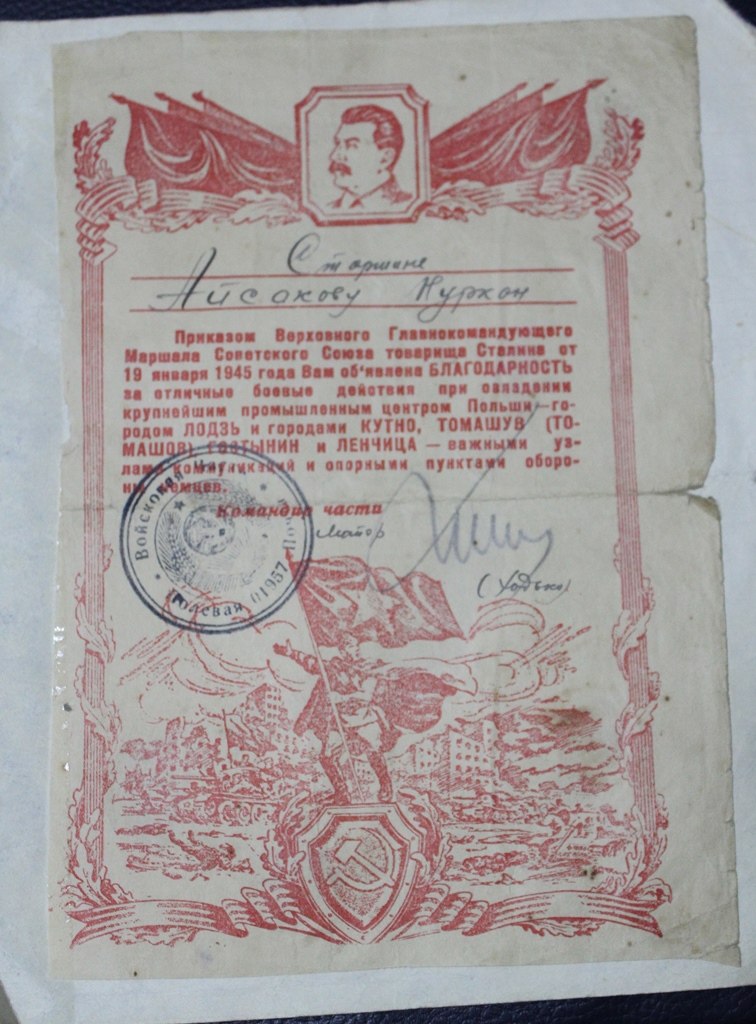 Старшине
Айсакову Нуркан
Приказом Верховного Главнокомандующего
Маршала Советского Союза товарища Сталина от
19 января 1945 года Вам об'явлена БЛАГОДАРНОСТЬ
за отличные боевые действия при овладении
крупнейшим промышленным центром Польши—го-
родом ЛОДЗЬ и городами КУТНО, ТОМАШУВ (ТО-
МАШОВ) ГОСТЫНИН и ЛЕНЧИЦА — важными уз-
лами коммуникаций и опорными пунктами оборо-
ны немцев.
Командир части
Майор
(Ходько)
Войсковая Часть Полевая Почта 01957